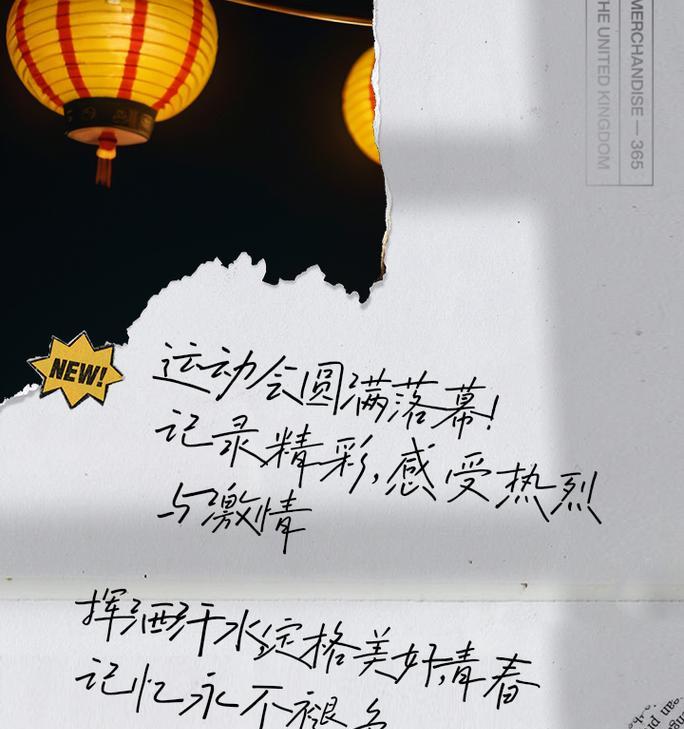 MERCHANDISE — 365
THE UNITED KINGDOM
NEW!
运动会圆满落幕!
记录精彩,感受热烈
与激情
挥洒汗水定格美好,青春
记忆永不褪色